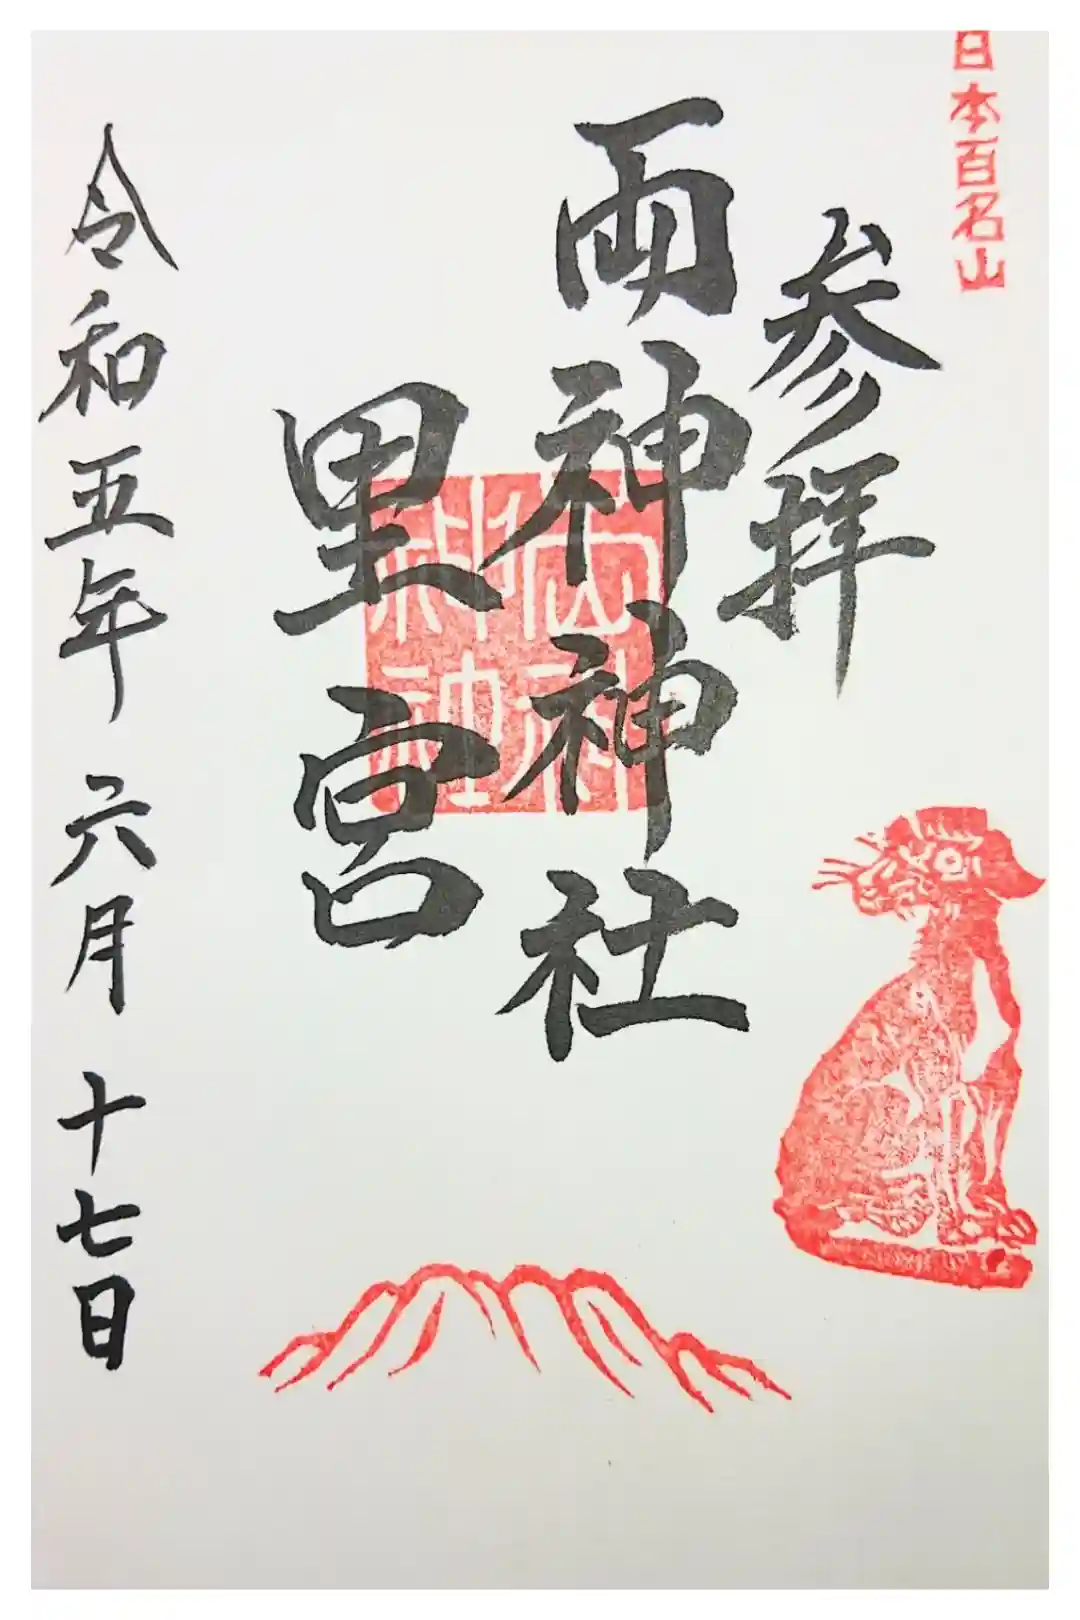 日本百名山
参拝
両神神社
里宮
令和五年 六月 十七日